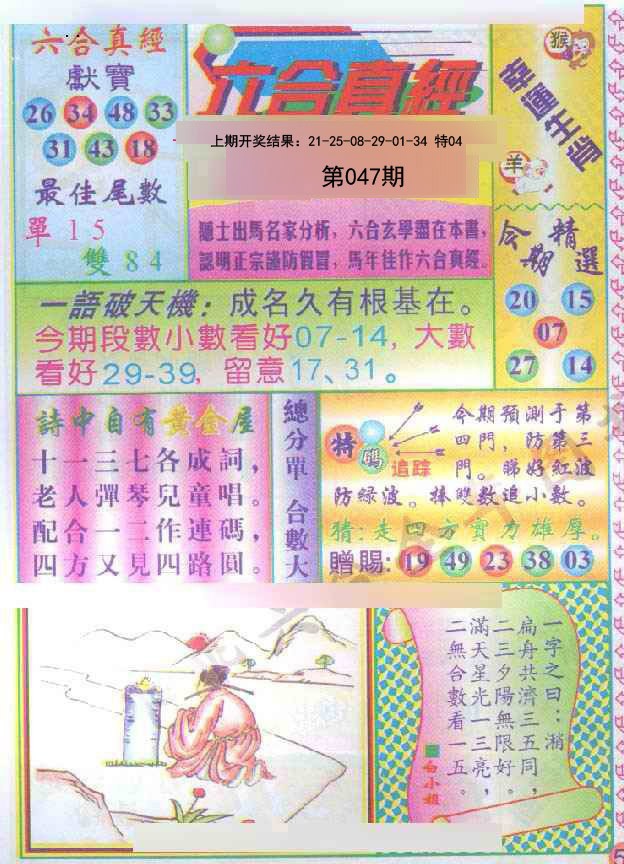 六合真經
獻寶
26 34 48 33
31 43 18
最佳尾數
單15
雙84
六合真經
上期开奖结果：21-25-08-29-01-34 特04
第047期
隱士出馬名家分析，六合玄學盡在本書，
認明正宗謹防假冒，馬年佳作六合真經。
猴
幸運生肖
羊
今期精選
20 15
07
27 14
一語破天機：成名久有根基在。
今期段數小數看好07-14，大數
看好29-39，留意17、31。
詩中自有黃金屋
十一三七各成詞，
老人彈琴兒童唱。
配合一二作連碼，
四方又見四路圓。
總分單 合數大
特碼
追踪
今期預測于第
四門，防第三
門。睇好紅波
防綠波。捧雙數追小數。
猜:走四方實力雄厚。
贈賜: 19 49 23 38 03
一字之曰：消
扁舟共濟三五同，
二三夕陽無限好，
滿天星光一三亮。
二無合數看一五。
白小姐